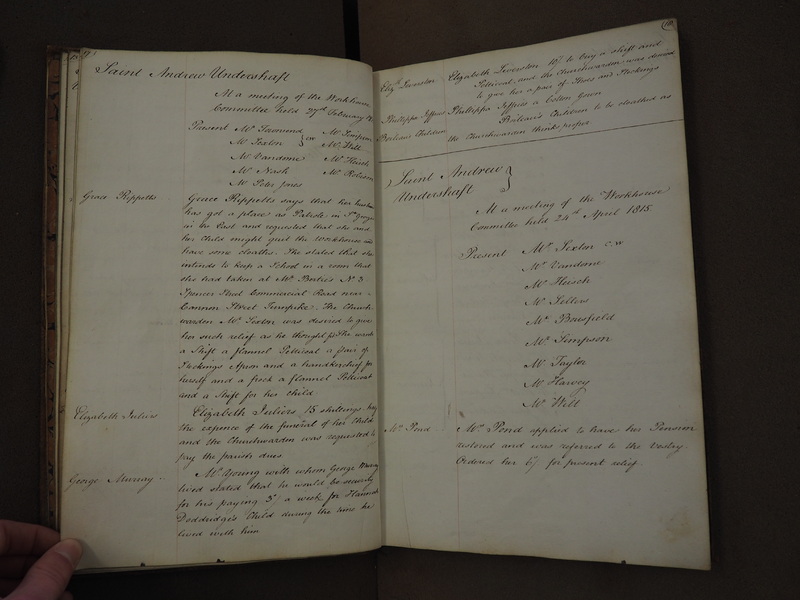 Saint Andrew Undershaft
At a meeting of the Workhouse
Committee held 27th February
Present Mr Townsend
Mr Sexton
cw
Mr Simpson
Mr Witt
Mr Vandome
Mr Heisch
Mr Nash
Mr Robson
Mr Petr Jones
Grace Rippetts
Grace Rippetts says that her husband
has got a place as Patrole in St George
in the East and requested that she and
her Child might quit the Workhouse and
have some cloaths. She stated that she
intends to keep a School in a room that
she had taken at Mr No 3
Spencer Street Commercial Road near
Cannon Street Turnpike. The Church
warden Mr Sexton was desired to give
her such relief as he thought fit She wants
a Shift a flannel Petticoat a pair of
Stockings Apron and a handkerchief for
herself and a frock a flannel Petticoat
and a Shift for her child
Elizabeth Juliers
Elizabeth Juliers 15 shillings
the expence of the funeral of her Child
and the Churchwarden was requested to
pay the parish dues
George Murray
Mr Young with whom George Murray
lived stated that he would be security
for his paying 3/ a week for Hannah
Doddridge's Child during the time he
lived with him
Elizth Leverston
Elizabeth Leverston 10/ to buy a shift and
Petticoat and the Churchwarden was desired
to give her a pair of Shoes and Stockings
Phillippa Jeffries
Phillippa Jeffries a Cotton Gown
Children
Children to be cloathed as
the Churchwarden thinks proper
Saint Andrew
Undershaft
At a meeting of the Workhouse
Committee held 24th April 1815
Present Mr Sexton cw
Mr Vandome
Mr Heisch
Mr Sellers
Mr Bousfield
Mr Simpson
Mr Taylor
Mr Harvey
Mr Witt
Mrs Pond
Mrs Pond applied to have her Pension
restored and was referred to the Vestry.
Ordered her 6/ for present relief